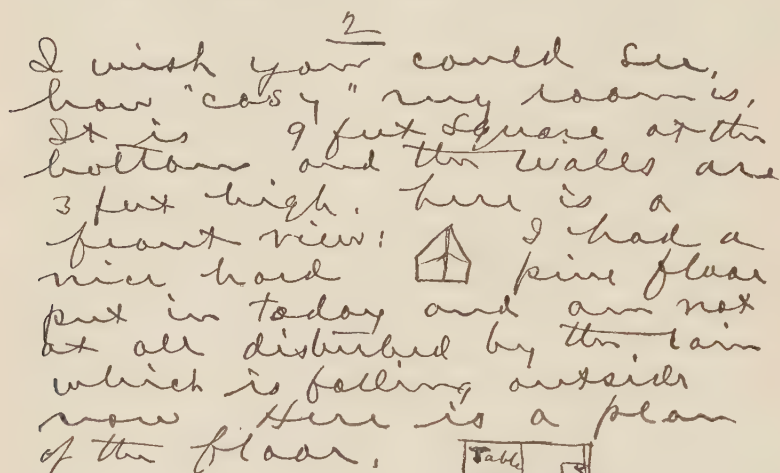 2
I wish you could see,
how "cosy" my room is.
It is 9 feet square at the
bottom and the walls are
3 feet high. here is a
front view: I had a
nice hard pine floor
put in today and am not
at all disturbed by the rain
which is falling outside
now Here is a plan
of the floor.
Table